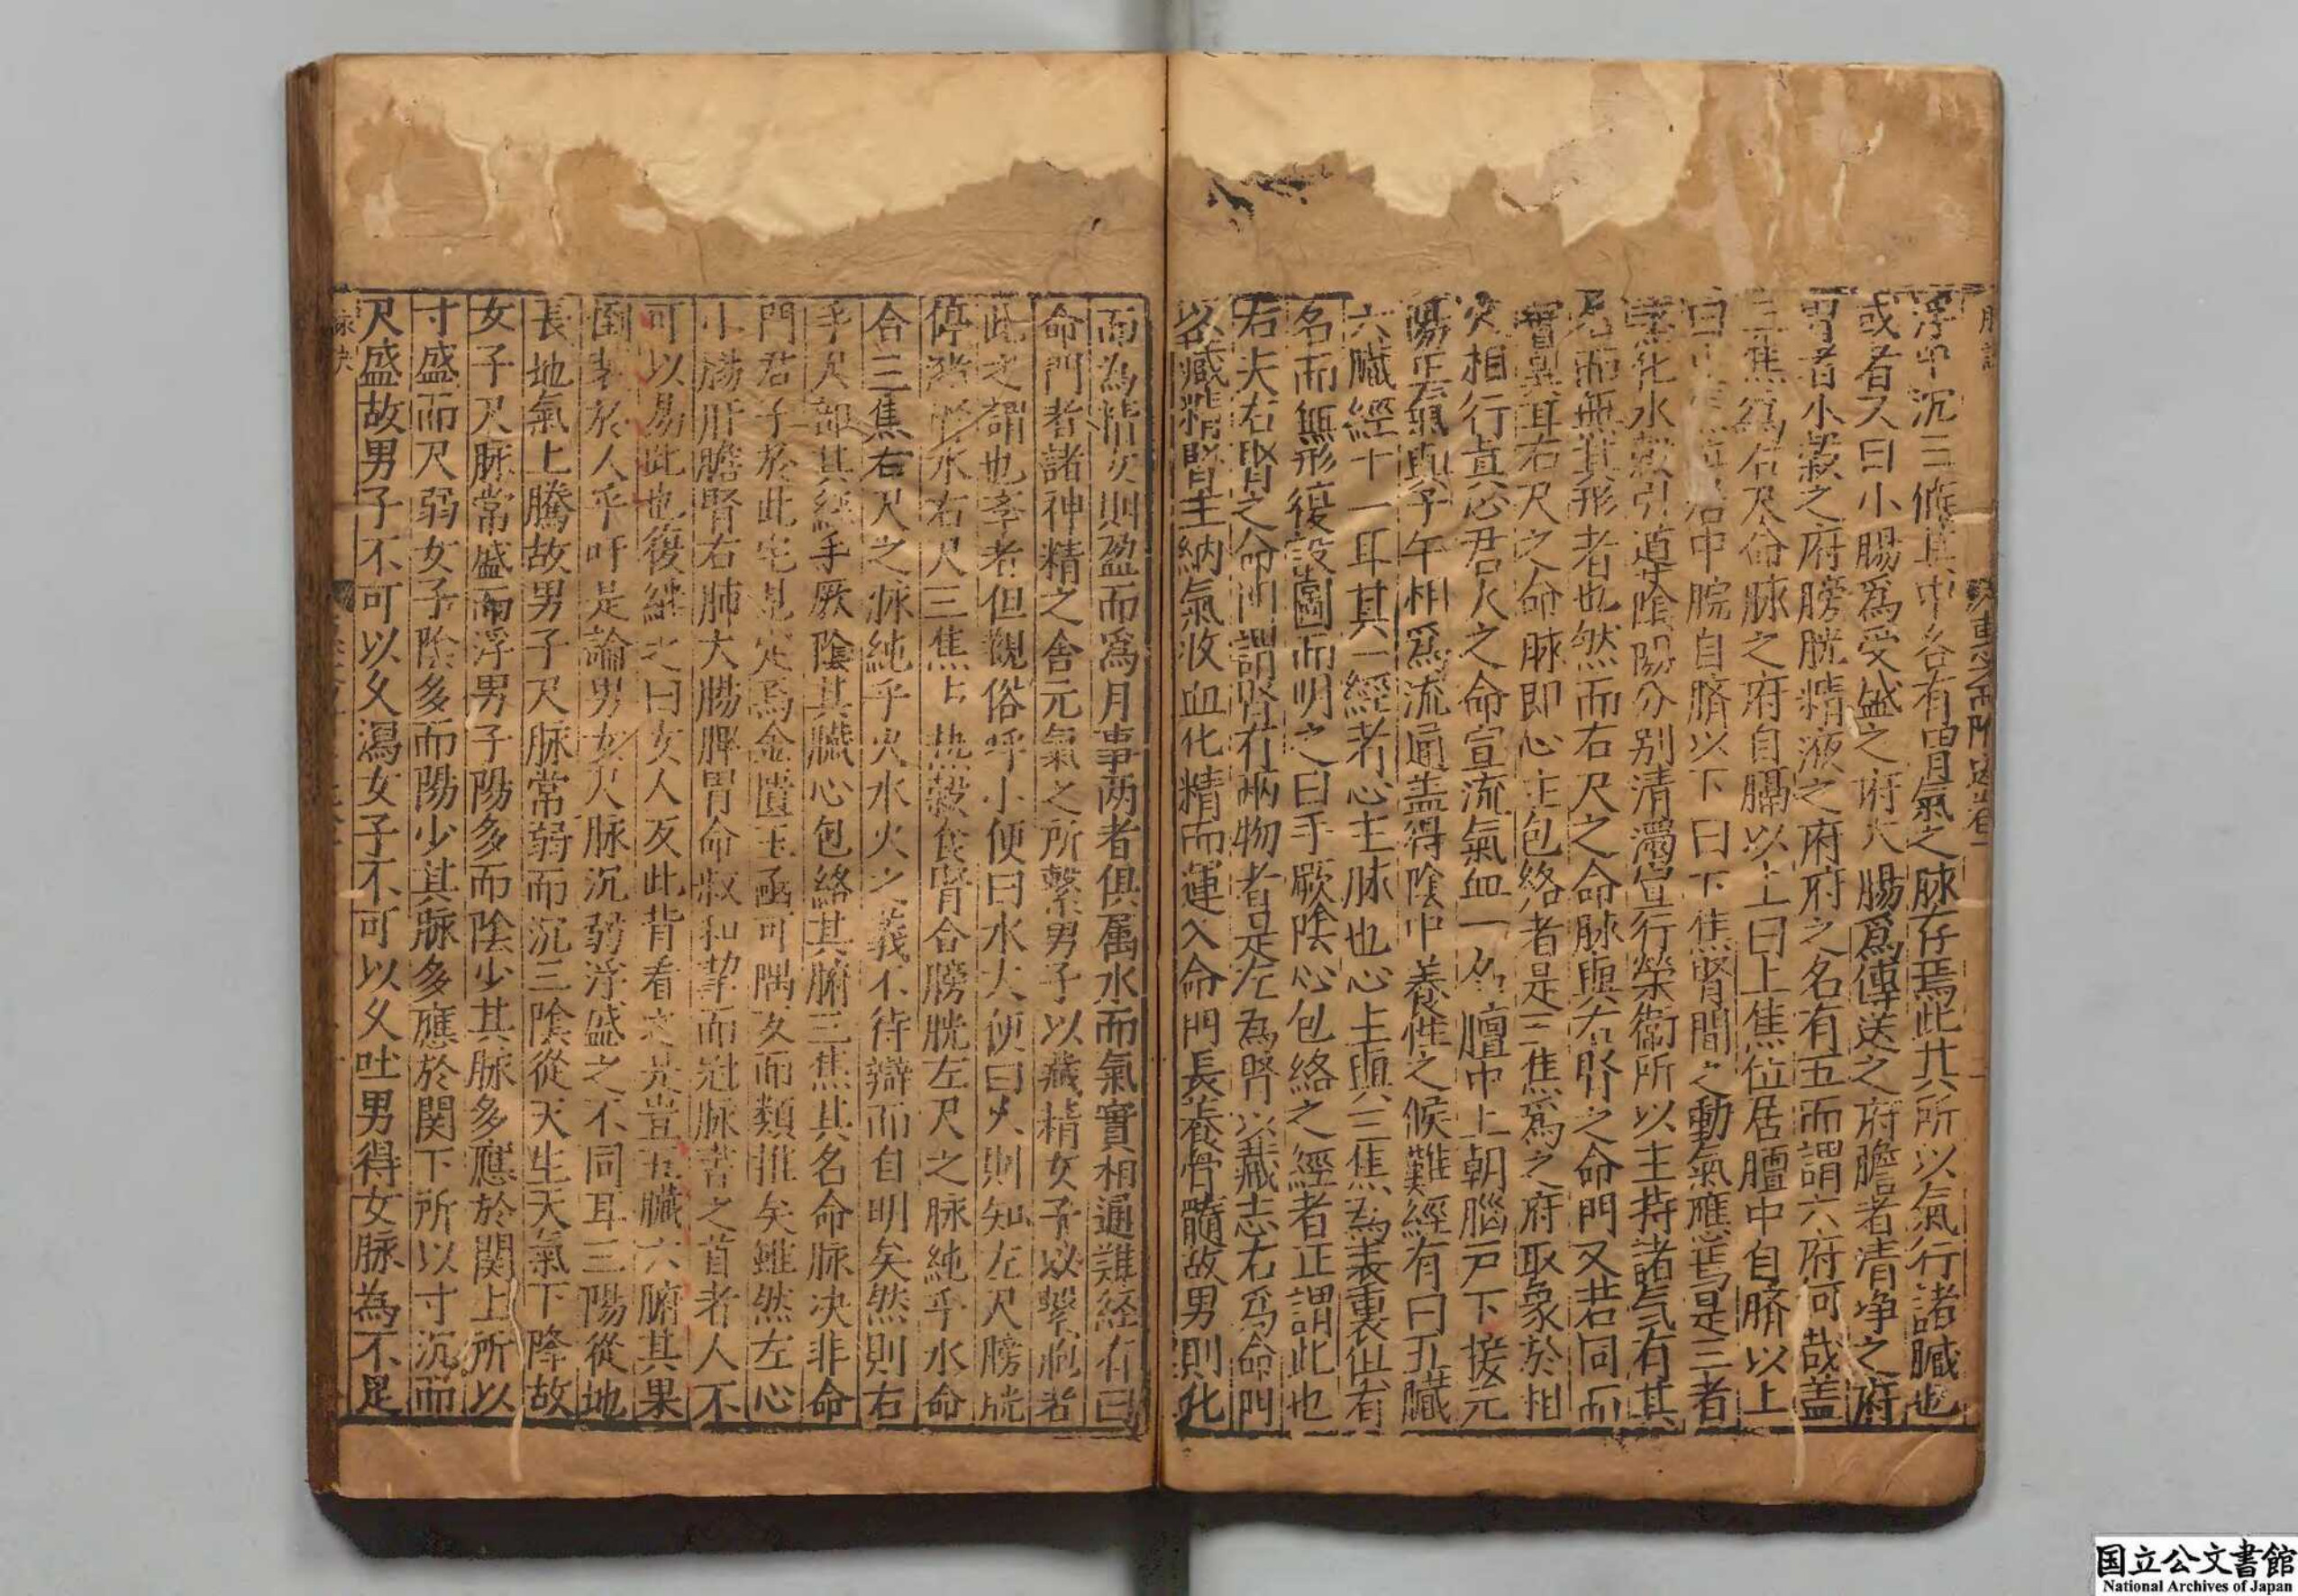 浮中沉三候其中各有胃氣之脉存焉此其所以氣行諸臟也
或者又曰小腸爲受盛之府大腸爲傳送之府膽者清净之府
胃者水穀之府膀胱精液之府府之名有五而謂六府何哉盖
三焦爲右尺命脉之府自膈以上曰上焦位居膻中自臍以上
曰中焦位居中脘自臍以下曰下焦腎間之動氣應焉是三者
蒸化水穀引道陰陽分别清濁宣行榮衛所以主持諸氣有其
名而無其形者也然而右尺之命脉與右腎之命門又若同而
實異耳右尺之命脉即心主包絡者是三焦爲之府取象於相
火相行真心君火之命宣流氣血一名膻中上朝腦戸下接元
陽正氣真子午相爲流通盖得陰中養性之候難經有曰五臟
六臟經十一耳其一經者心主脉也心主與三焦為表裏但有
名而無形復設圖而明之曰手厥陰心包絡之經者正謂此也
右夫右腎之命門謂腎有兩物者是左為腎以藏志右爲命門
以藏精腎主納氣收血化精而運入命門長養骨髓故男則化
而為精女則盈而爲月事两者俱属水而氣實相通難経有曰
命門者諸神精之舎元氣之所繫男子以藏精女子以繫胞者
此之謂也孝者但觀俗呼小便曰水大便曰火則知左尺膀胱
停瀦 水右尺三焦上 穀食腎合膀胱左尺之脉純乎水命
合三焦右尺之脉純乎火水火之義不待辯而自明矣然則右
手尺部其經手厥陰其臟心包絡其腑三焦其名命脉决非命
門君子於此宅見定焉金匱玉函可隅反而類推矣雖然左心
小腸肝膽腎右肺大腸脾胃命叔和挈而冠脉書之首者人不
可以易此也復繼之曰女人反此背看之尤豈五臟六腑其果
倒装於人乎吁是論男女尺脉沉弱浮盛之不同耳三陽從地
長地氣上騰故男子尺脉常弱而沉三陰從天生天氣下降故
女子尺脉常盛而浮男子陽多而陰少其脉多應於関上所以
寸盛而尺弱女子陰多而陽少其脉多應於関下所以寸沉而
尺盛故男子不可以久瀉女子不可以久吐男得女脉為不足
国立公文書館
National Archives of Japan